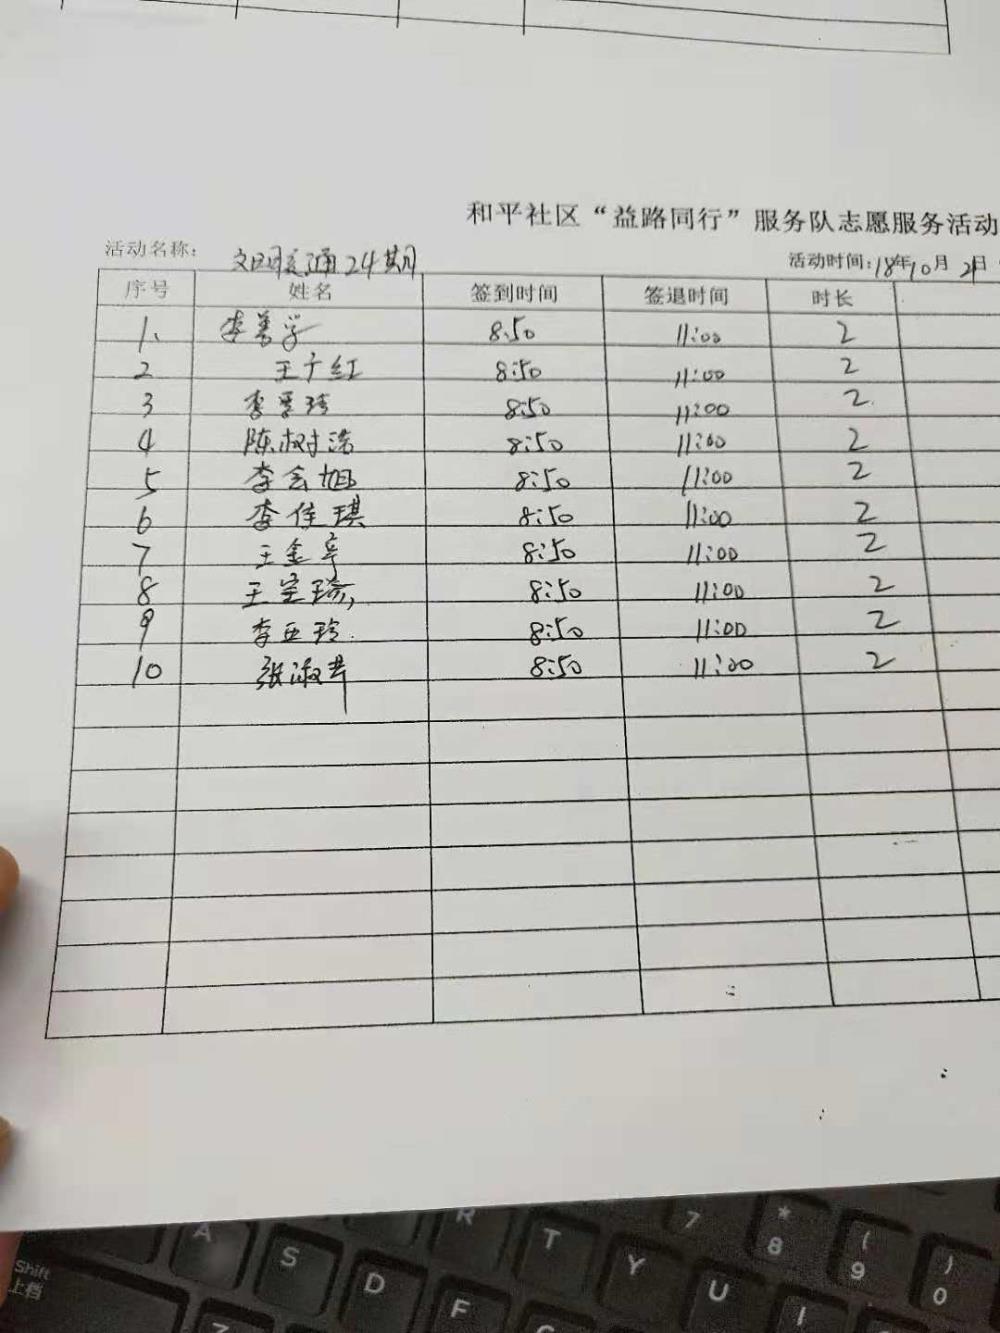 和平社区“益路同行”服务队志愿服务活动
活动名称: 文明交通24期 活动时间:18年10月21日
序号 姓名 签到时间 签退时间 时长
1、 李善学 8:50 11:00 2
2 王于红 8:50 11:00 2
3 李 8:50 11:00 2
4 陈树浩 8:50 11:00 2
5 李会旭 8:50 11:00 2
6 李佳琪 8:50 11:00 2
7 王金 8:50 11:00 2
8 王宝瑜 8:50 11:00 2
9 李亚玲 8:50 11:00 2
10 张淑 8:50 11:00 2
R T Y U 7 * 8 ( 9 ) 0
A S D F
Shift
上档